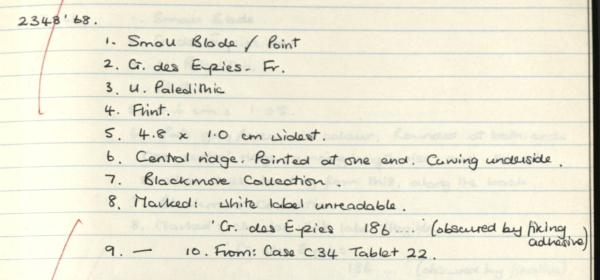 2348'68.
1. Small Blade / Point
2. Cr. des Eyzies - Fr.
3. U. Paleolithic
4. Flint.
5. 4.8 x 1.0 cm widest.
6. Central ridge. Pointed at one end. Curving underside.
7. Blackmore Collection.
8. Marked: White label unreadable.
'Cr. des Eyzies 186 ... (obscured by fixing adhesive)
9. — 10. From: Case C34 Tablet 22.